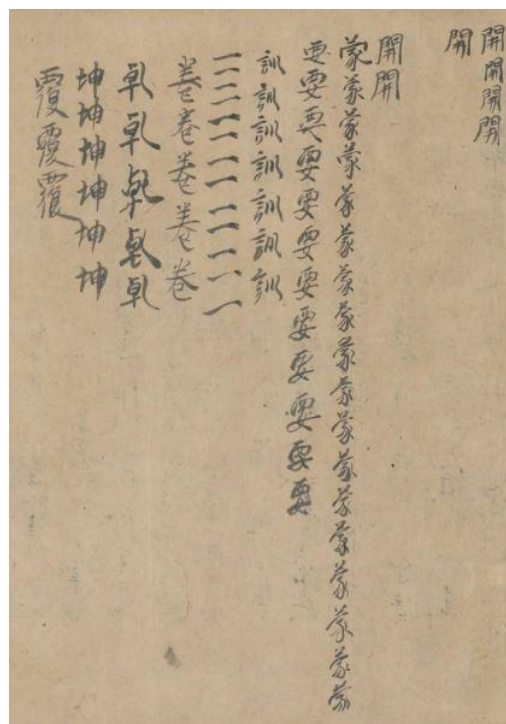 開開開開
開
開開
蒙蒙蒙蒙蒙蒙蒙蒙蒙蒙蒙蒙蒙蒙蒙蒙蒙蒙
要要要要要要要要要要要要
訓訓訓訓訓訓訓
一一一一一一一一一一一一一
卷卷卷卷卷
乹乹乹乹乹
坤坤坤坤坤坤
覆覆覆